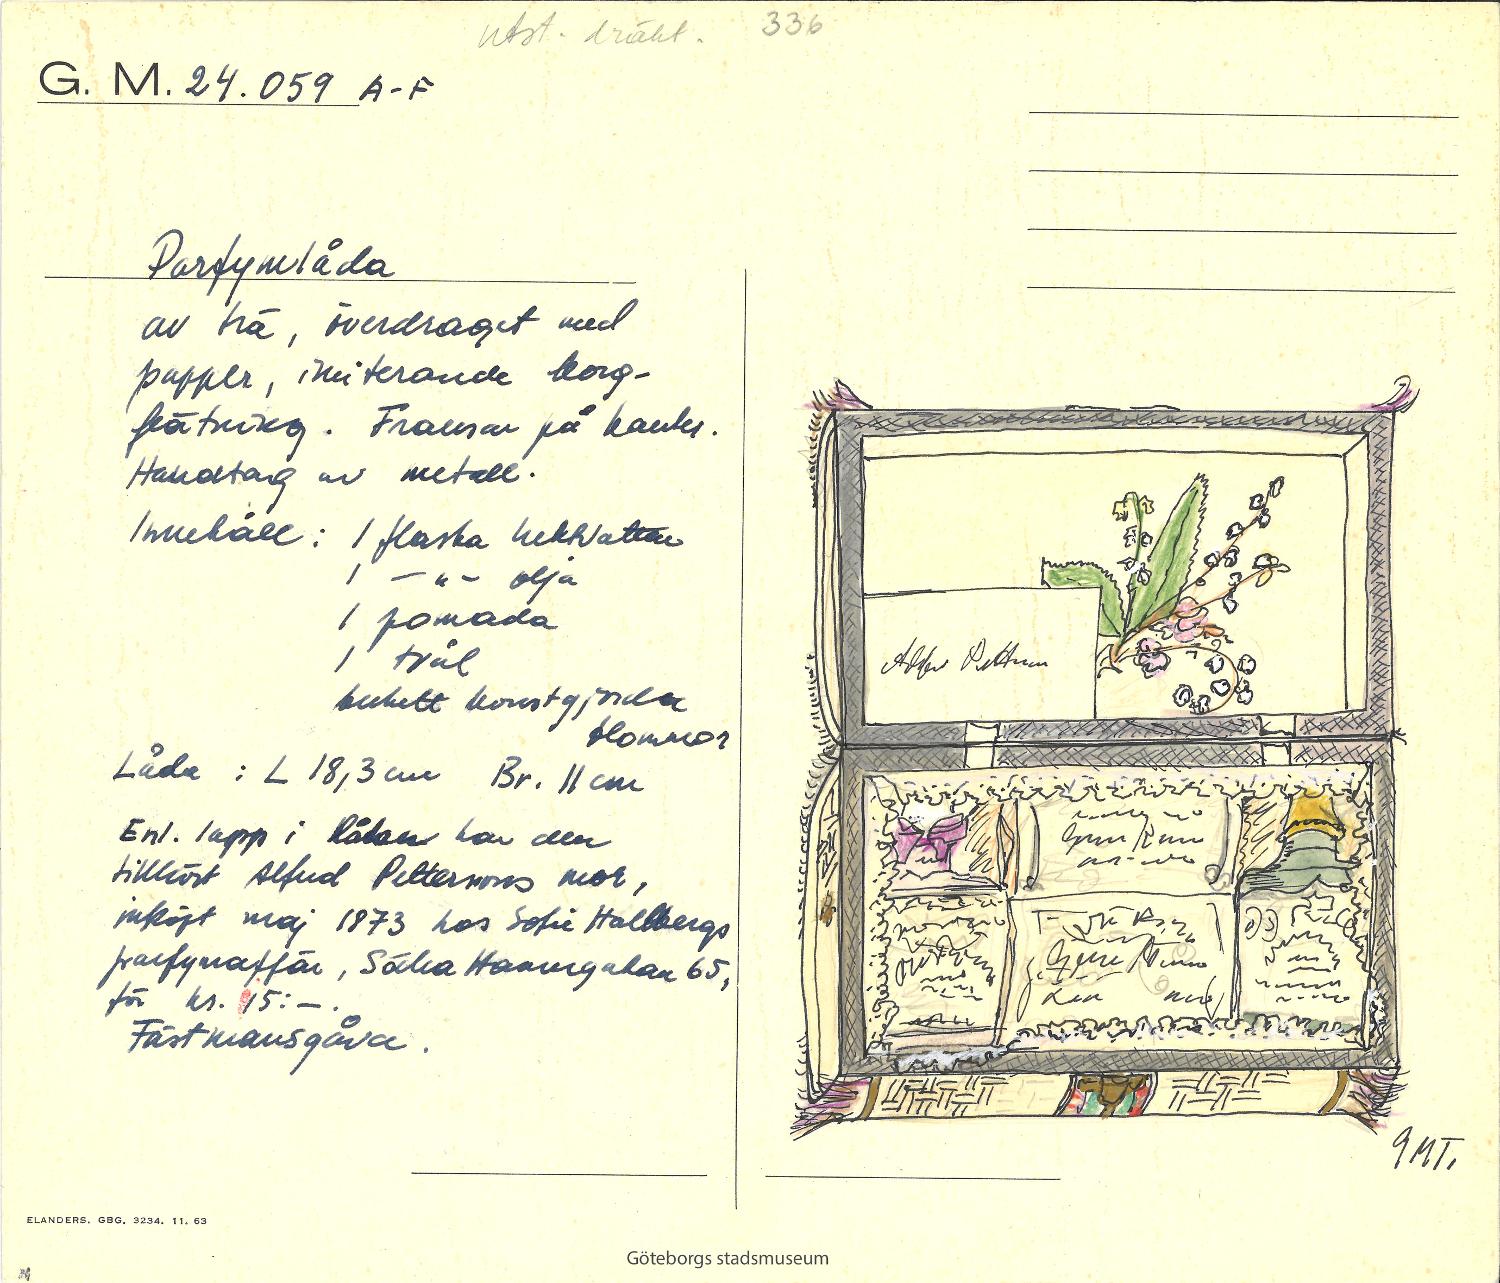 utst. dräkt. 336
G. M. 24.059 A-F
Parfymlåda
av trä, överdraget med
papper, imiterande korg-
flätning. Fransar på kanter.
Handtag av metall.
Innehåll: 1 flaska luktvatten
1 -"- olja
1 pomada
1 tvål
bukett konstgjorda
blommor
Låda : L 18,3 cm Br. 11 cm
Enl. lapp i lådan har den
tillhört Alfred Petterssons mor,
inköpt maj 1873 hos Sofie Hallbergs
parfymaffär, Södra Hamngatan 65,
för kr. 15:-.
Fästmansgåva.
GMT.
ELANDERS. GBG. 3234. 11. 63
Göteborgs stadsmuseum